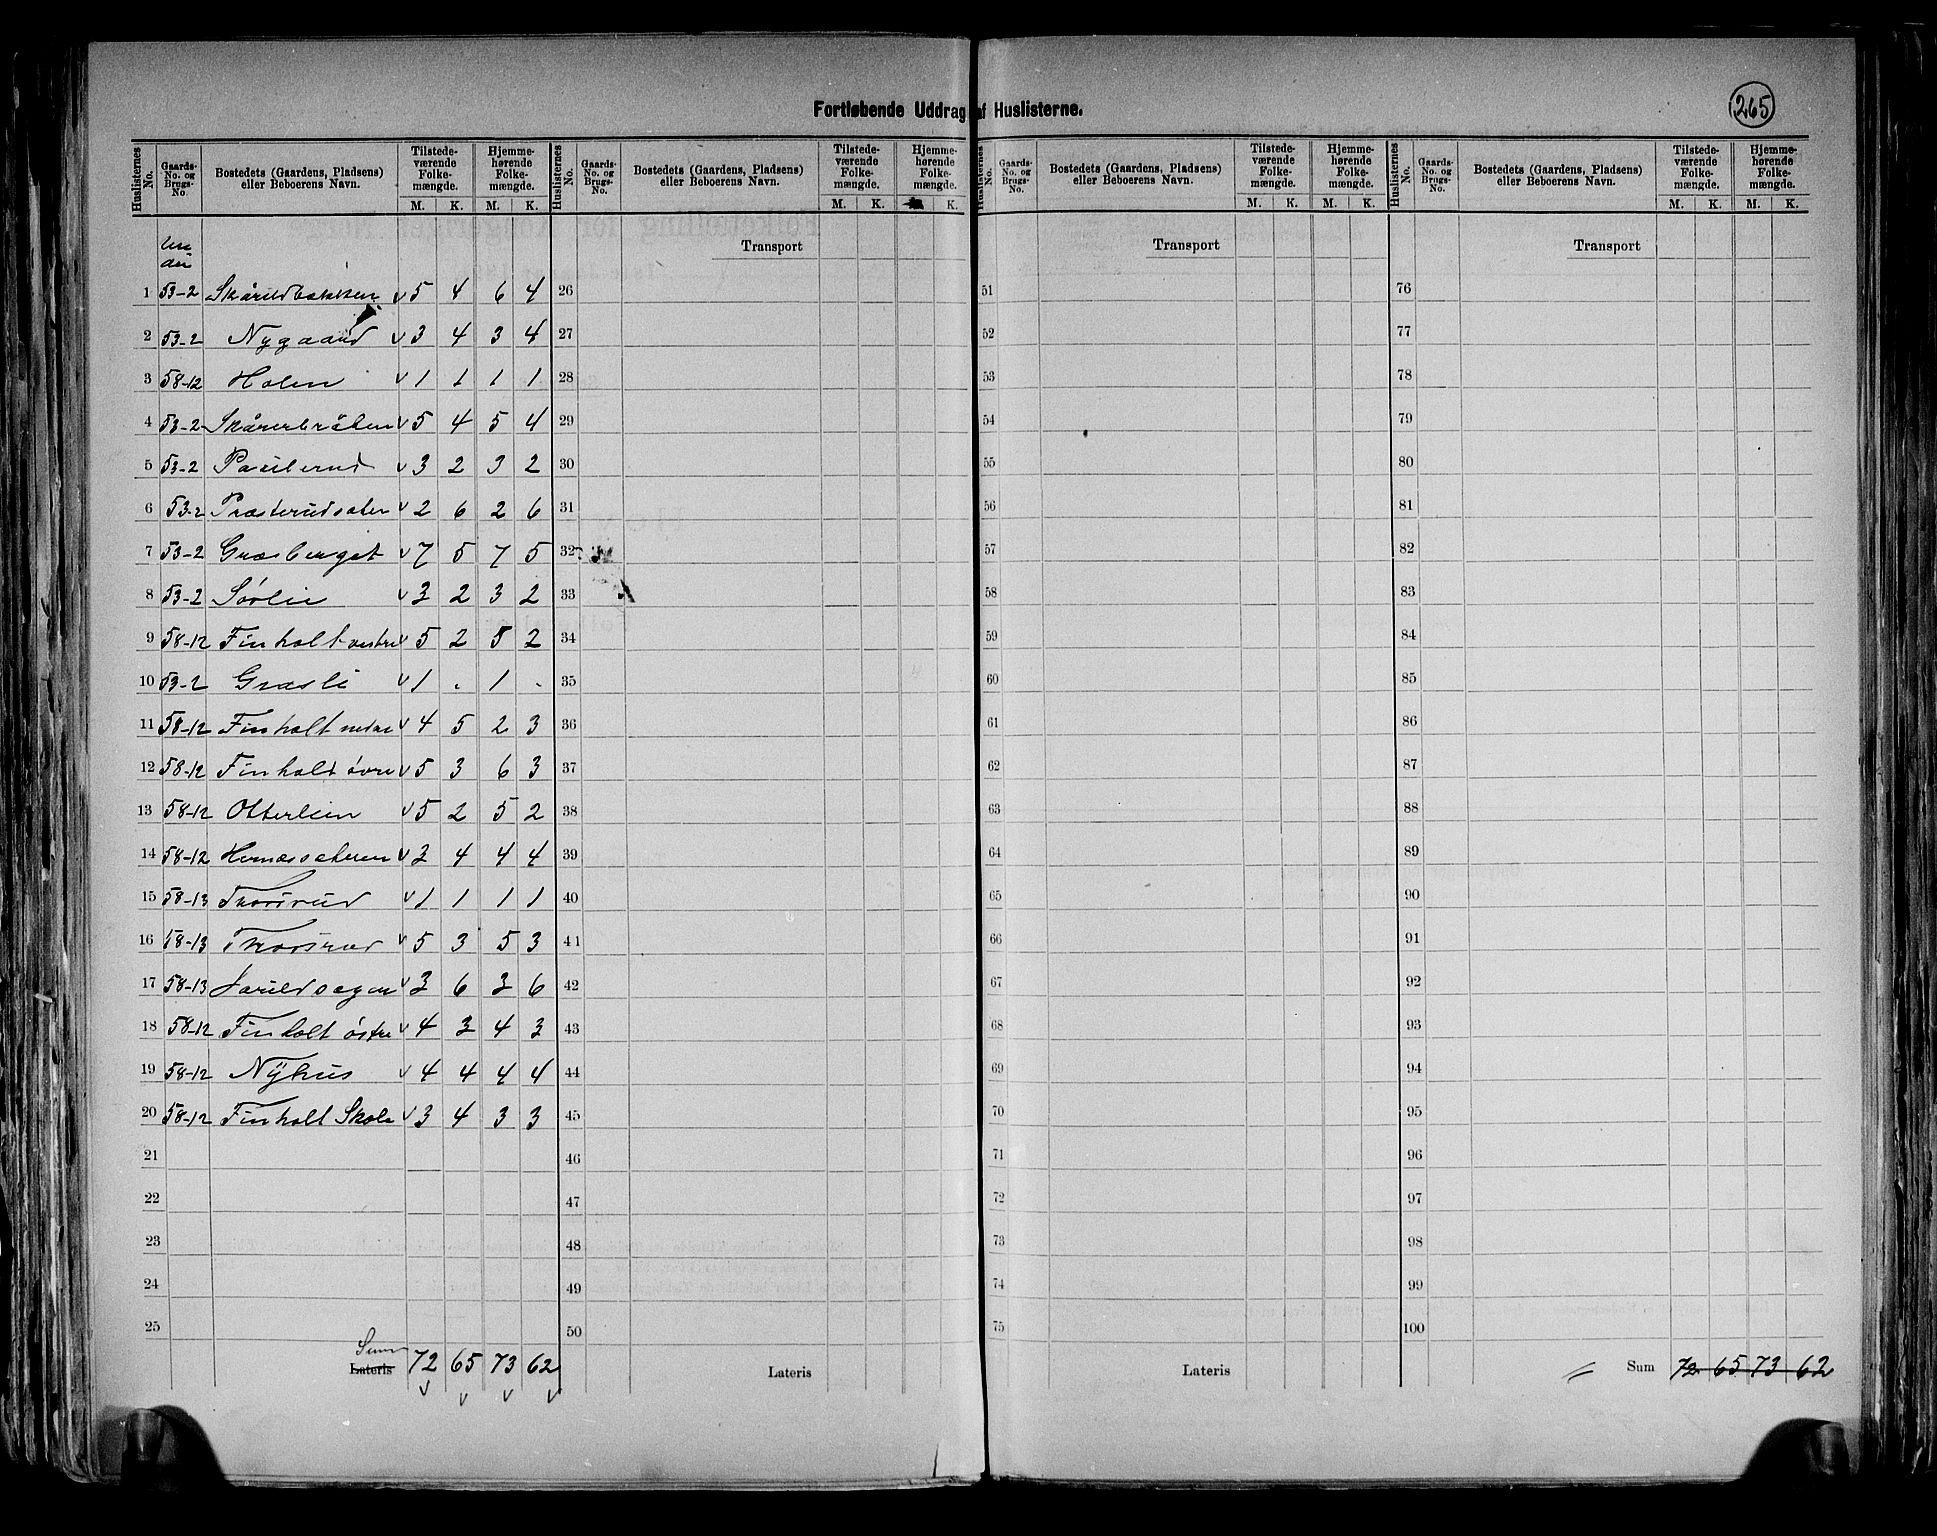 Fortløbende Uddrag af Huslisterne.
265
Huslisternes No. Gaards- No. og Brugs- No. Bostedets (Gaardens, Pladsens) eller Beboerens Navn. Tilstede- værende Folke- mængde. Hjemme- hørende Folke- mængde.
M. K. M. K.
Huslisternes No. Gaards- No. og Brugs- No. Bostedets (Gaardens, Pladsens) eller Beboerens Navn. Tilstede- værende Folke- mængde. Hjemme- hørende Folke- mængde.
M. K. K.
Huslisternes No. Gaards- No. og Brugs- No. Bostedets (Gaardens, Pladsens) eller Beboerens Navn. Tilstede- værende Folke- mængde. Hjemme- hørende Folke- mængde.
M. K. M. K.
Huslisternes No. Gaards- No. og Brugs- No. Bostedets (Gaardens, Pladsens) eller Beboerens Navn. Tilstede- værende Folke- mængde. Hjemme- hørende Folke- mængde.
M. K. M. K.
Un
der
1 53-2 Skårudbakken v 5 4 6 4
2 53-2 Nygaard v 3 4 3 4
3 58-12 Holen v 1 1 1 1
4 53-2 Skårerbråten v 5 4 5 4
5 53-2 Paulerud v 3 2 3 2
6 53-2 Præsterudsæter v 2 6 2 6
7 53-2 Græsberget v 7 5 7 5
8 53-2 Sørlie v 3 2 3 2
9 58-12 Finholt vestre v 5 2 5 2
10 53-2 Græsli v 1 . 1 .
11 58-12 Finholt nedre v 4 5 2 3
12 58-12 Finholt øvre v 5 3 6 3
13 58-12 Otterlien v 5 2 5 2
14 58-12 Hernæssæteren v 3 4 4 4
15 58-13 Thorsrud v 1 1 1 1
16 58-13 Thorsrud v 5 3 5 3
17 58-13 v 3 6 3 6
18 58-12 Finholt østre v 4 3 4 3
19 58-12 Nÿhus v 4 4 4 4
20 58-12 Finholt Skole v 3 4 3 3
21
22
23
24
25
Sum
Lateris 72 65 73 62
v v v v
Transport
26
27
28
29
30
31
32
33
34
35
36
37
38
39
40
41
42
43
44
45
46
47
48
49
50
Lateris
Transport
51
52
53
54
55
56
57
58
59
60
61
62
63
64
65
66
67
68
69
70
71
72
73
74
75
Lateris
Transport
76
77
78
79
80
81
82
83
84
85
86
87
88
89
90
91
92
93
94
95
96
97
98
99
100
Sum 72 65 73 62